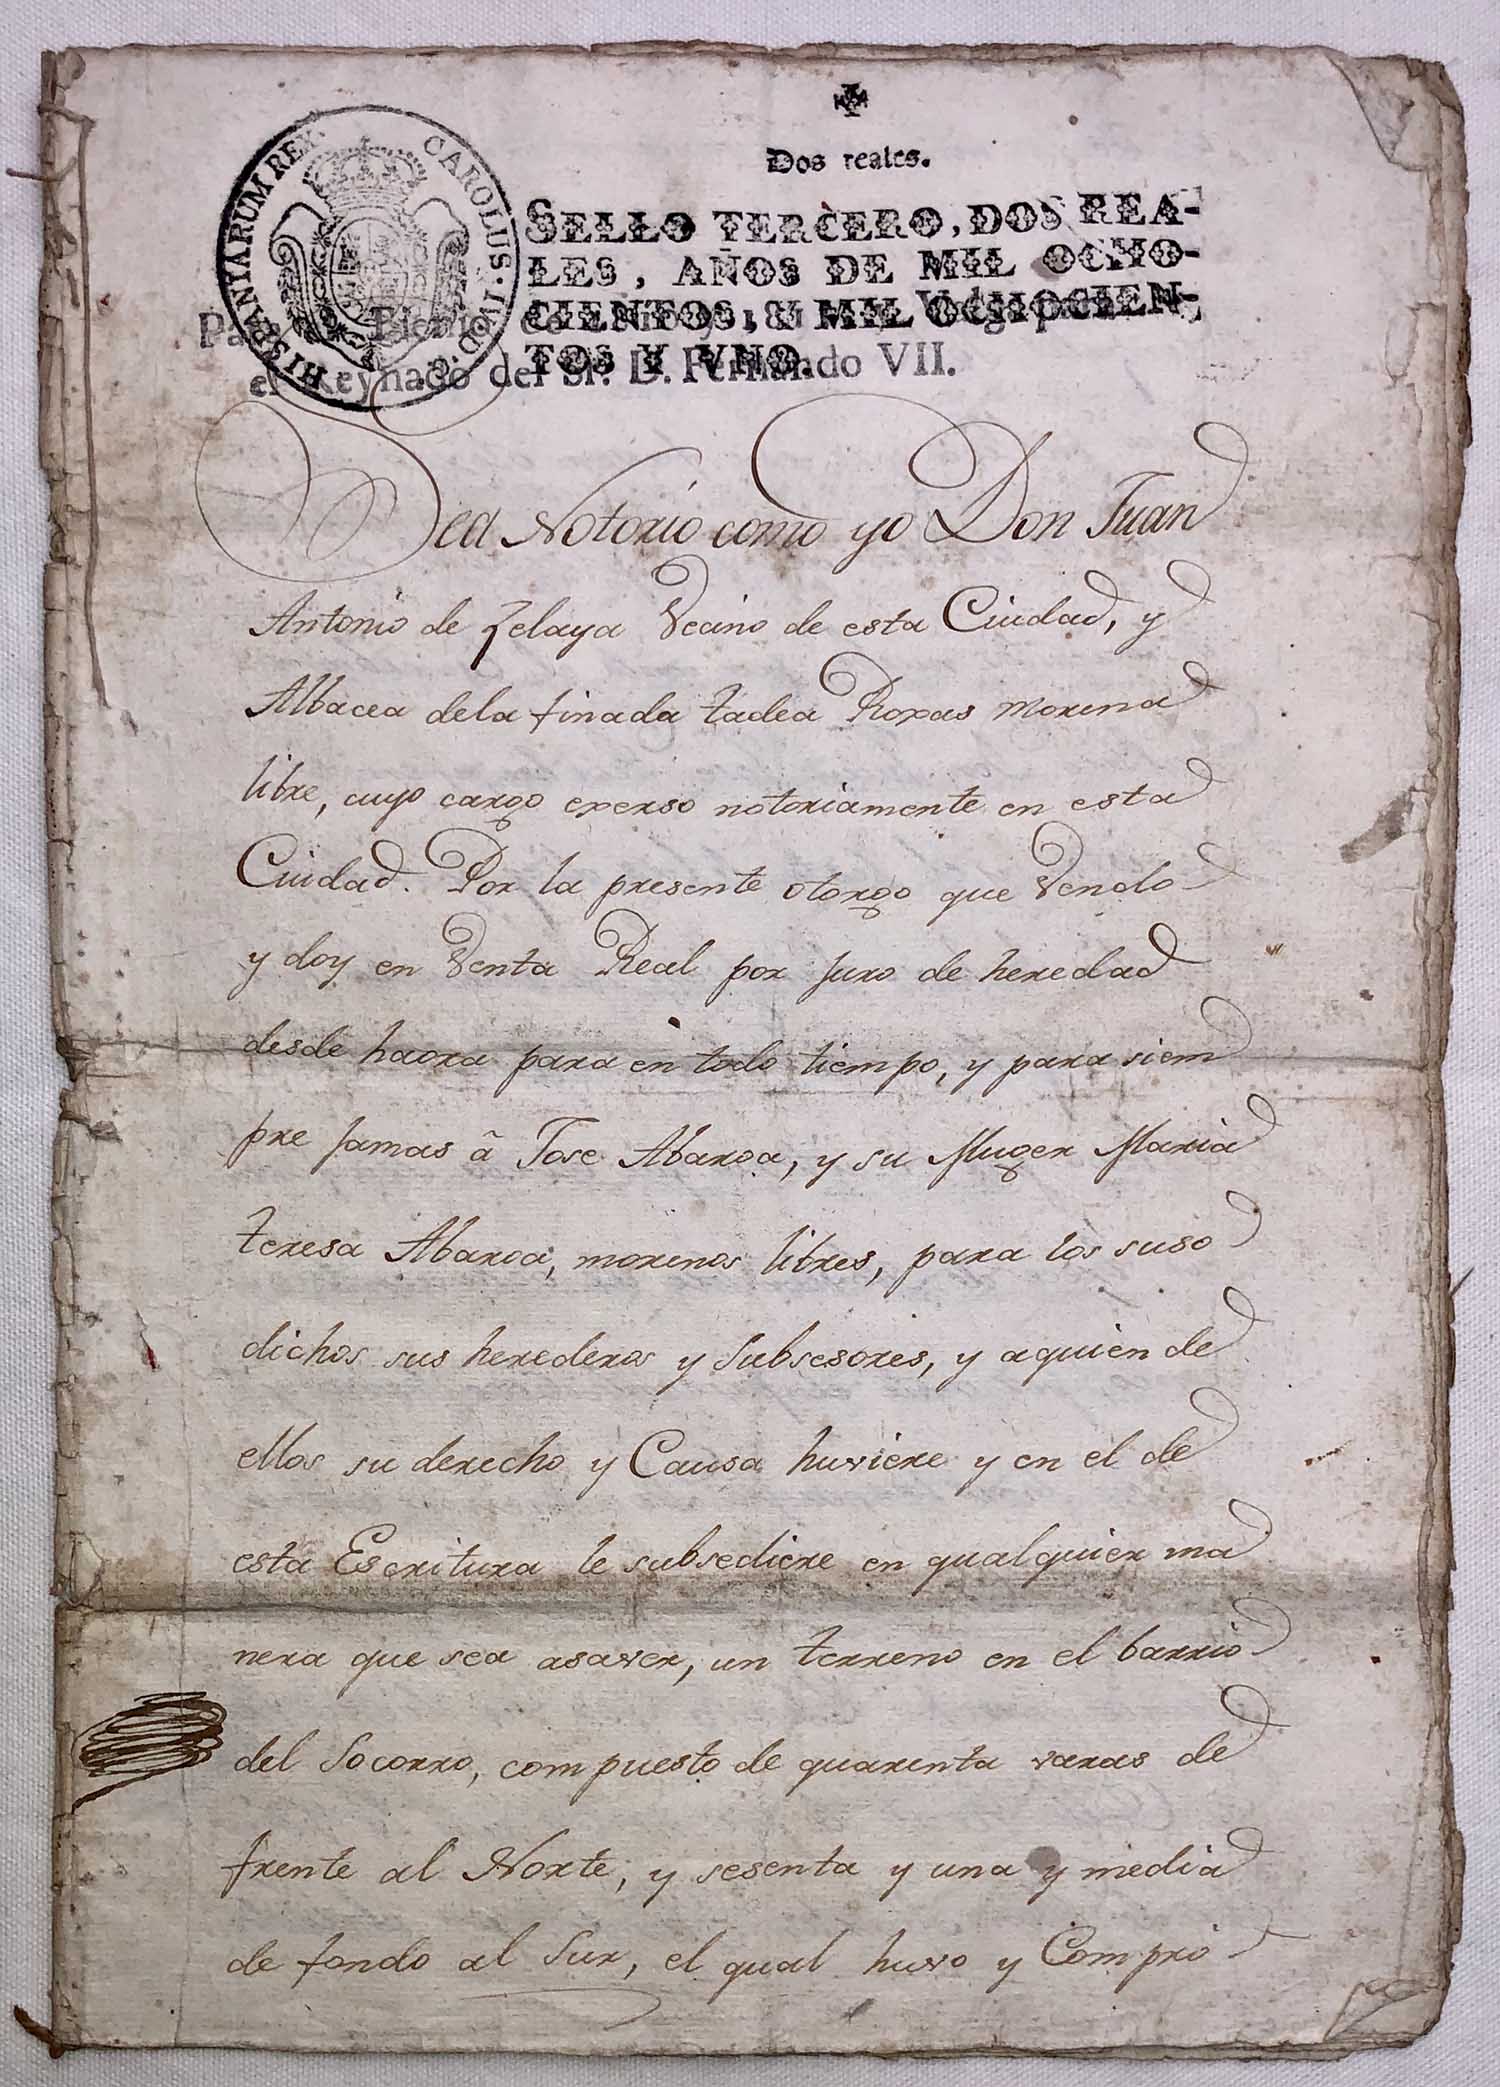 Dos reales.
SELLO TERCERO, DOS REA-
LES, AÑOS DE MIL OCHO-
CIENTOS, Y MIL OCHOCIEN-
TOS Y VNO.
HISPANYARUM REX. CAROLUS. IV. D. G.
el Reynado del Sr. D. Fernando VII.
Sea Notorio como yo Don Juan
Antonio de Zelaya Vecino de esta Ciudad, y
Albacea dela finada Tadea Roxas morena
libre, cuyo cargo exerso notoriamente en esta
Ciudad. Por la presente otorgo que Vendo
y doy en Venta Real por juro de heredad
desde haora para en todo tiempo, y para siem
pre Jamas â Jose Abaroa, y su Muger Maria
Teresa Abaroa, morenos libres, para los suso
dichos sus herederos y Subsesores, y aquien de
ellos su derecho y Causa huviere y en el de
esta Escritura le subsediere en qualquier ma
nera que sea asaver, un terreno en el barrio
del Socorro, compuesto de quarenta varas de
frente al Norte, y sesenta y una y media
de fondo al Sur, el qual huvo y Compró